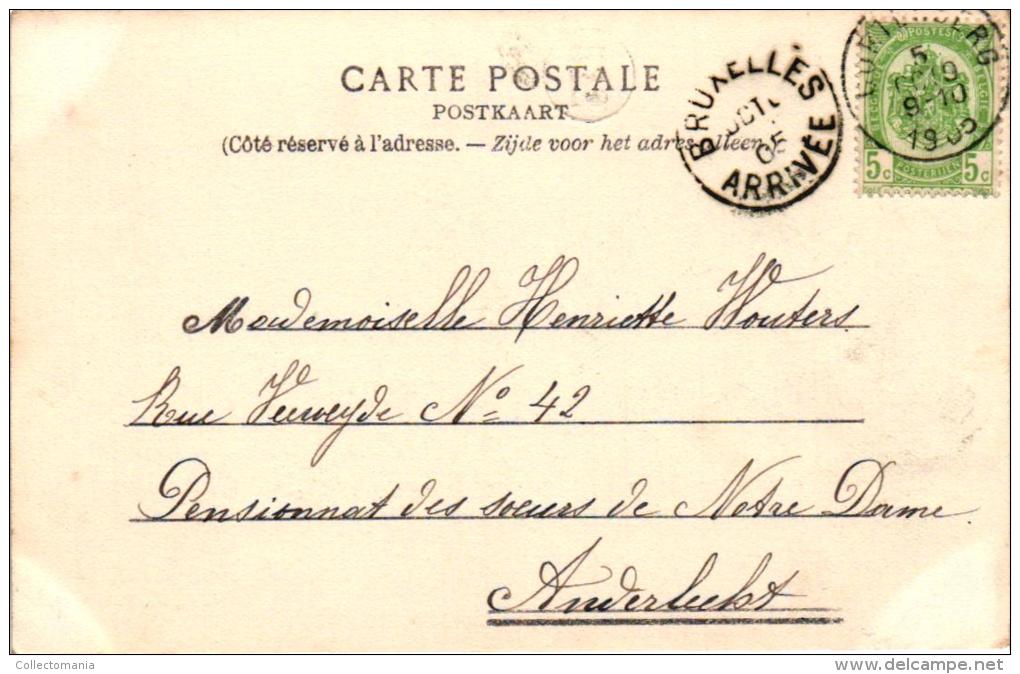 CARTE POSTALE
POSTKAART
(Côté réservé à l'adresse. — Zijde voor het adres alleen.)
BRUXELLES
OCT
05
ARRIVÉE
5
9-10
1905
POSTES
5c 5c
POSTERIJEN
Mademoiselle Henriette Wouters
Rue Veeweyde No 42
Pensionnat des soeurs de Notre Dame
Anderlecht
Collectomania
delcampe.net